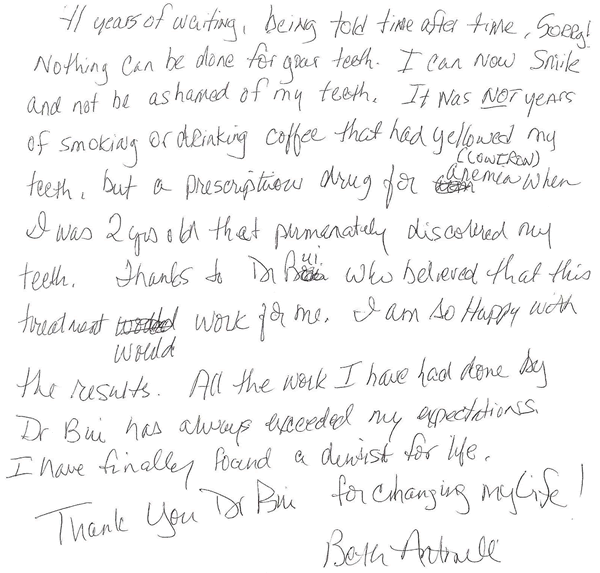 41 years of waiting, being told time after time, Sorry!
Nothing can be done for your teeth. I can now Smile
and not be ashamed of my teeth. It was NOT years
of smoking or drinking coffee that had yellowed my
(LOW IRON)
teeth, but a prescription drug for anemea when
I was 2 yrs old that permanately discolored my
teeth. Thanks to Dr Bui who believed that this
treatment would work for me. I am so Happy with
the results. All the work I have had done by
Dr Bui has always exceeded my expectations.
I have finally found a dentist for life.
Thank You Dr Bui for changing my life!
Beth